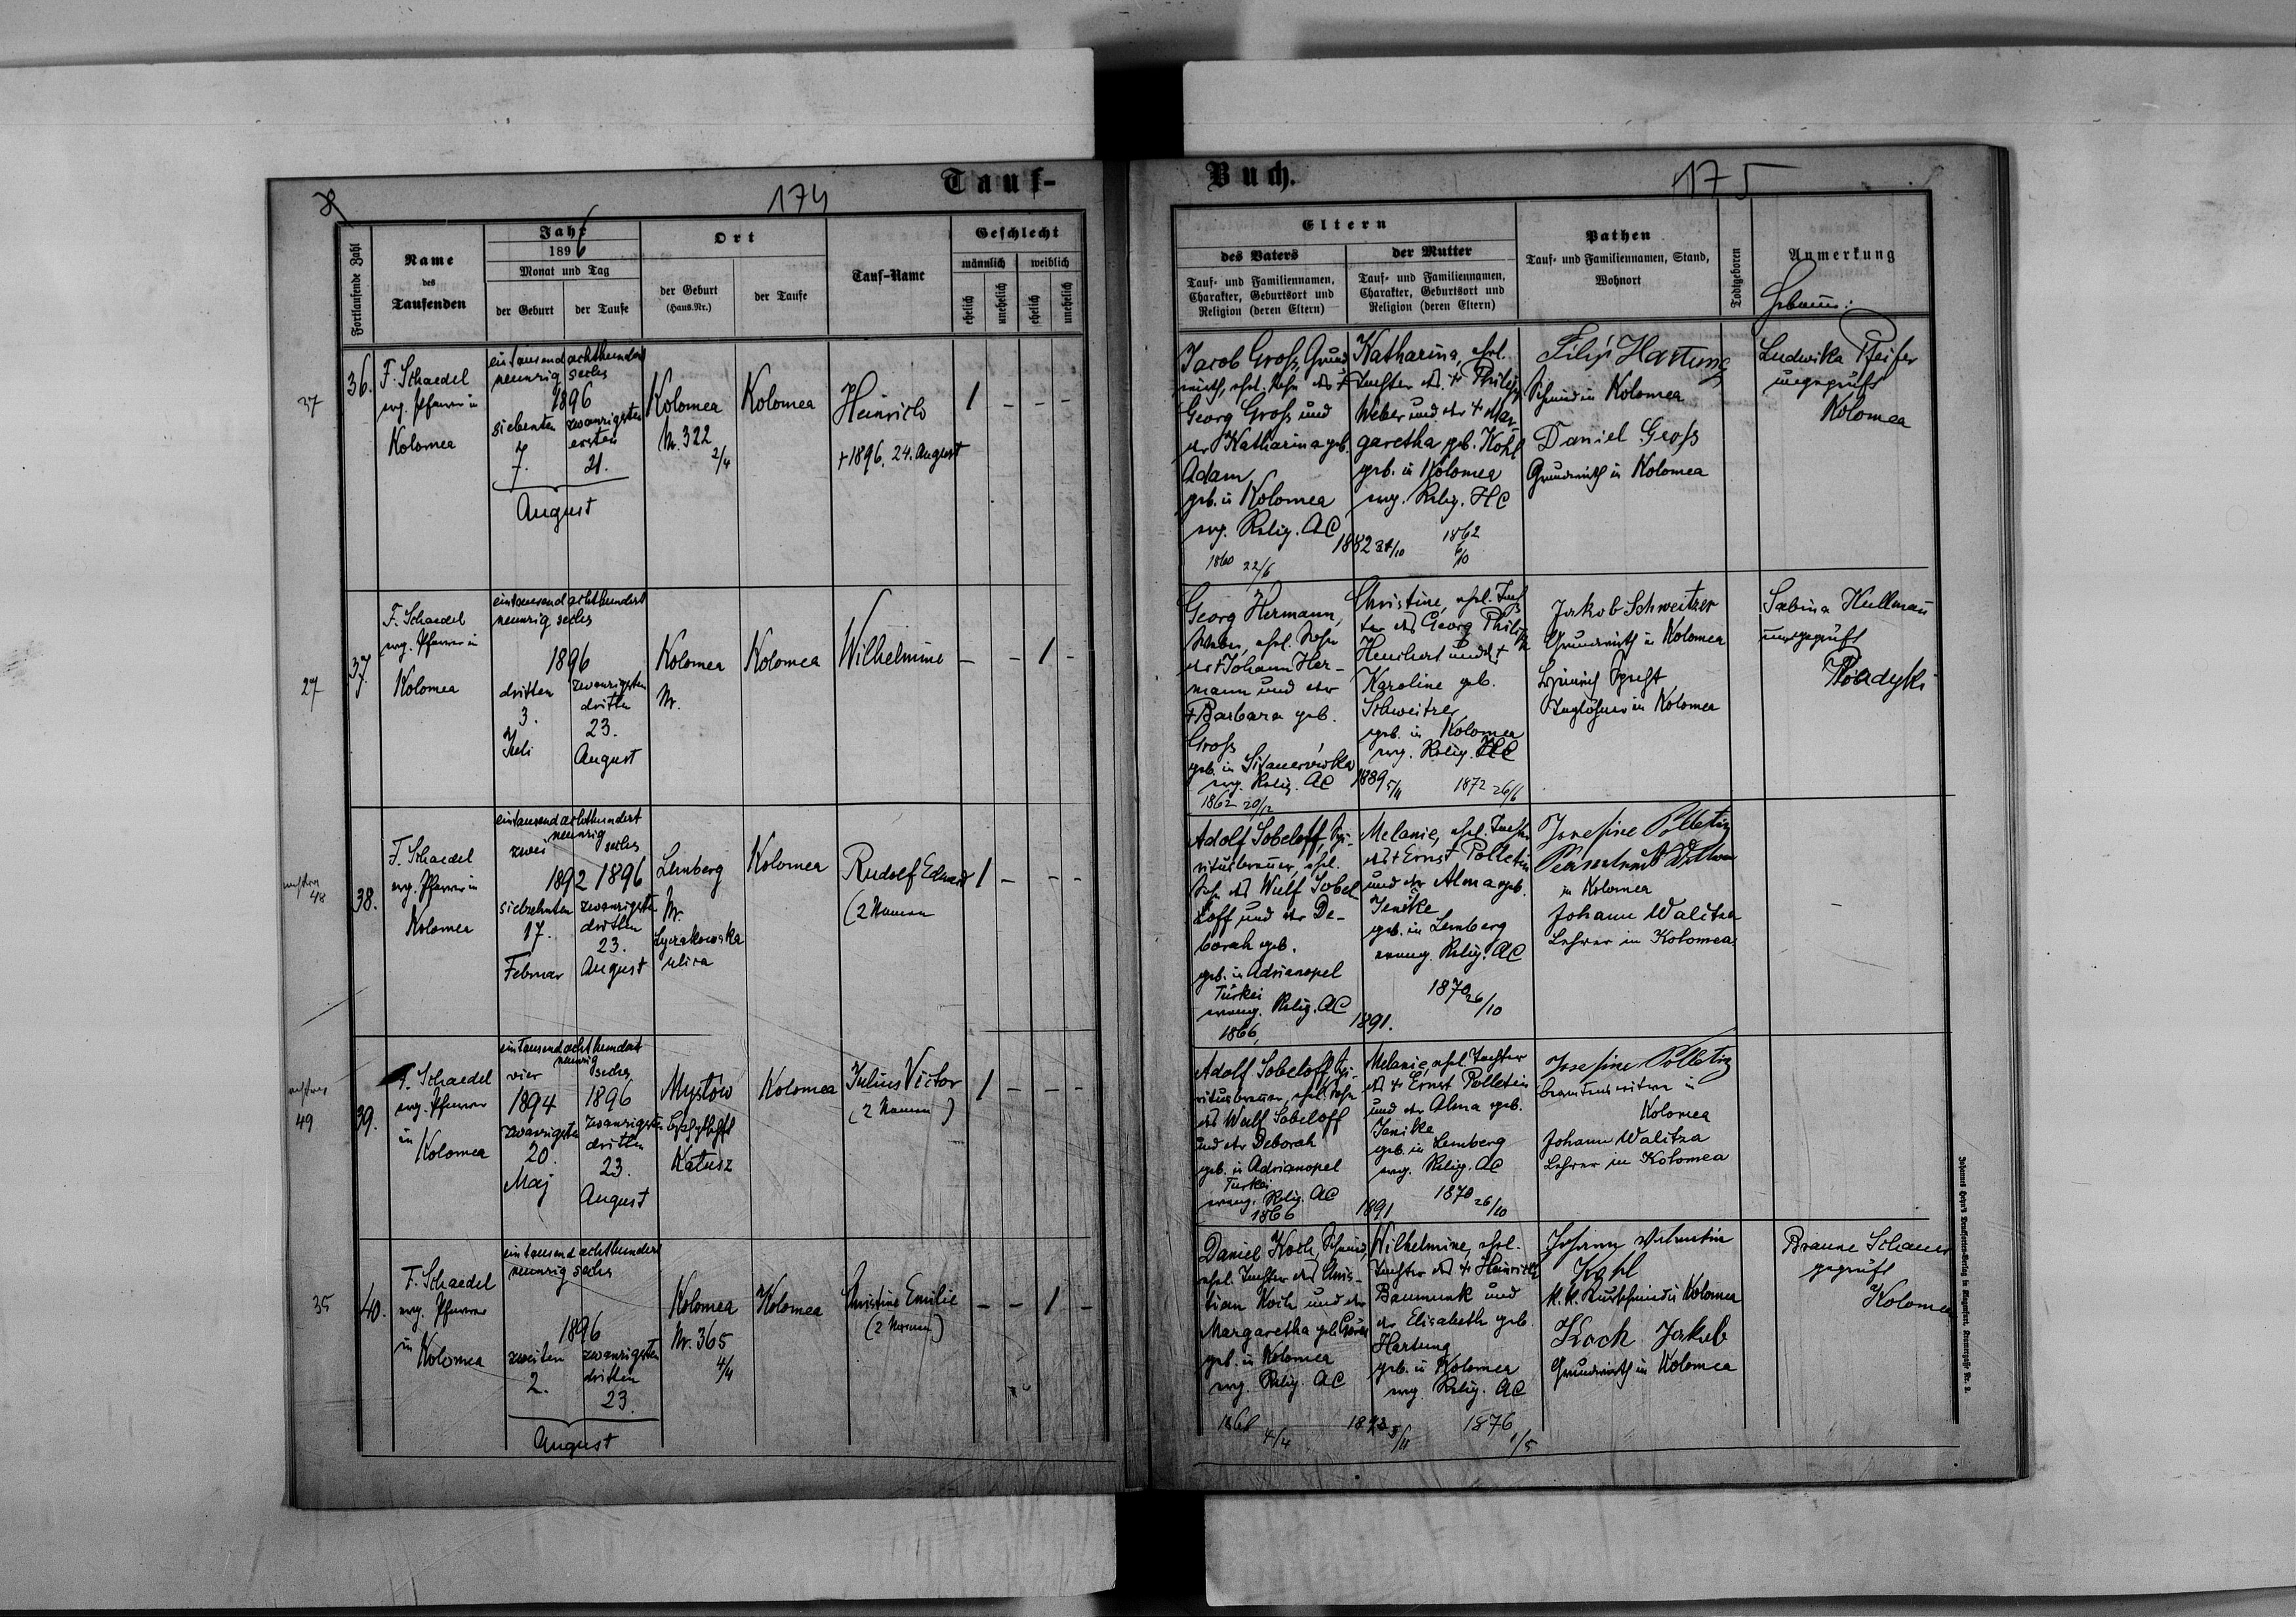 Tauf-
174
Fortlaufende Zahl
Name
des
Taufenden
Jahr
1896
Monat und Tag
der Geburt
der Taufe
Ort
der Geburt
(Haus-Nr.)
der Taufe
Tauf-Name
Geschlecht
männlich
weiblich
ehelich
unehelich
ehelich
unehelich
37
36.
F. Schaedel
evg. Pfarrer in
Kolomea
eintausend achthundert
neunzig sechs
1896
siebenten
7.
zwanzigsten
ersten
21.
August
Kolomea
Nr. 322
2/4
Kolomea
Heinrich
+ 1896. 24. August
1 - - -
27
37.
F. Schaedel
evg. Pfarrer in
Kolomea
eintausend achthundert
neunzig sechs
1896
dritten
3.
Juli
zwanzigsten
dritten
23.
August
Kolomea
Nr.
Kolomea
Wilhelmine
- - 1 -
48
38.
F. Schaedel
evg. Pfarrer in
Kolomea
eintausend achthundert
neunzig
zwei
sechs
1892 1896
siebzehnten
17.
Februar
zwanzigsten
dritten
23.
August
Lemberg
Nr.
Lyczakowska
ulica
Kolomea
Rudolf Eduard
(2 Namen
1 - - -
49
39.
F. Schaedel
evg. Pfarrer
in
Kolomea
eintausend achthundert
neunzig
vier
sechs
1894
zwanzigsten
20.
Maj
1896
zwanzigsten
dritten
23.
August
Mystow
Katusz
Kolomea
Julius Victor
(2 Namen)
1 - - -
35
40.
F. Schaedel
evg. Pfarrer
in
Kolomea
eintausend achthundert
neunzig sechs
1896
zweiten
2.
zwanzigsten
dritten
23.
August
Kolomea
Nr. 365
4/4
Kolomea
Christine Emilie
(2 Namen)
- - 1 -
Buch.
175
Eltern
des Vaters
Tauf- und Familiennamen,
Charakter, Geburtsort und
Religion (deren Eltern)
der Mutter
Tauf- und Familiennamen,
Charakter, Geburtsort und
Religion (deren Eltern)
Pathen
Tauf- und Familiennamen, Stand,
Wohnort
Todtgeboren
Anmerkung
Jacob Groß, Grund
wirth, ehel. Sohn des +
Georg Groß und
der Katharina geb.
Adam
geb. in Kolomea
evg. Relig. AC
1860 22/6
1882
Katharina, ehel.
Tochter des + Philipp
Weber und der + Mar-
garetha geb. Kohl
geb. in Kolomea
evg. Relig. HC
1862
6/10
Filip Hartung
Schmied in Kolomea
Daniel Groß
Grundwirth in Kolomea
Ludwika Pfeifer
ungeprüft
Kolomea
Georg Hermann,
ehel. Sohn
des + Johann Her-
mann und der
+ Barbara geb.
Groß
geb. in
evg. Relig. AC
1862 20/12
1889 5/11
Christine, ehel. Toch
ter des Georg Philipp
und d. +
Karoline geb.
Schweitzer
geb. in Kolomea
evg. Relig. HC
1872 26/6
Jakob Schweitzer
Grundwirth in Kolomea
Heinrich Specht
Taglöhner in Kolomea
Sabina Kullmann
ungeprüft
Adolf Sobeloff, Spi-
ritusbrenner, ehel.
Sohn des Wulf Sobel
loff und der De-
borah geb.
geb. in Adrianopel
Türkei
evang. Relig. AC
1866,
1891.
Melanie, ehel. Tochter
des + Ernst Polletin
und der Alma geb.
Jenike
geb. in Lemberg
evang. Relig. AC
1870 26/10
Josefine Polletin
in Kolomea
Johann Walitza
Lehrer in Kolomea
-
Adolf Sobeloff Spi-
ritusbrenner, ehel. Sohn
des Wulf Sobeloff
und der Deborah
geb. in Adrianopel
Türkei
evang. Relig. AC
1866
1891
Melanie, ehel. Tochter
des + Ernst Polletin
und der Alma geb.
Jenike
geb. in Lemberg
evg. Relig. AC
1870 26/10
Josefine Polletin
Beamtenswitwe in
Kolomea
Johann Walitza
Lehrer in Kolomea
Daniel Koch, Schmied,
ehel. Tochter des Chris-
tian Koch und der
Margaretha geb.
geb. in Kolomea
evg. Relig. AC
4/4
Wilhelmine, ehel.
Tochter des + Heinrich
und
der Elisabeth geb.
Hartung
geb. in Kolomea
evg. Relig. AC
1876 1/5
Johann Valentin
Kohl
k. k. Kurschmied in Kolomea
Koch Jakob
Grundwirth in Kolomea
geprüft
Kolomea